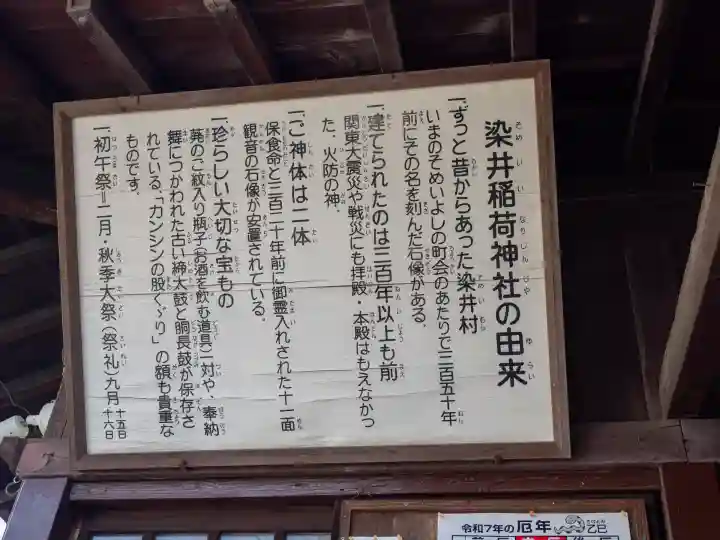 染井稲荷神社の由来
一、ずっと昔からあった染井村
いまのそめいよしの町会のあたりで三百五十年
前にその名を刻んだ石像がある。
一、建てられたのは三百年以上も前
関東大震災や戦災にも拝殿・本殿はもえなかっ
た、火防の神。
一、ご神体は二体
保食命と三百二十年前に御霊入れされた十一面
観音の石像が安置されている。
一、珍らしい大切な宝もの
葵のご紋入り瓶子(お酒を飲む道具)一対や、奉納
舞につかわれた古い締太鼓と胴長鼓が保存さ
れている。「カンシンの股くゞり」の額も貴重な
ものです。
一、初午祭=二月・秋季大祭(祭礼)九月十五日十六日
令和7年の厄年
乙巳